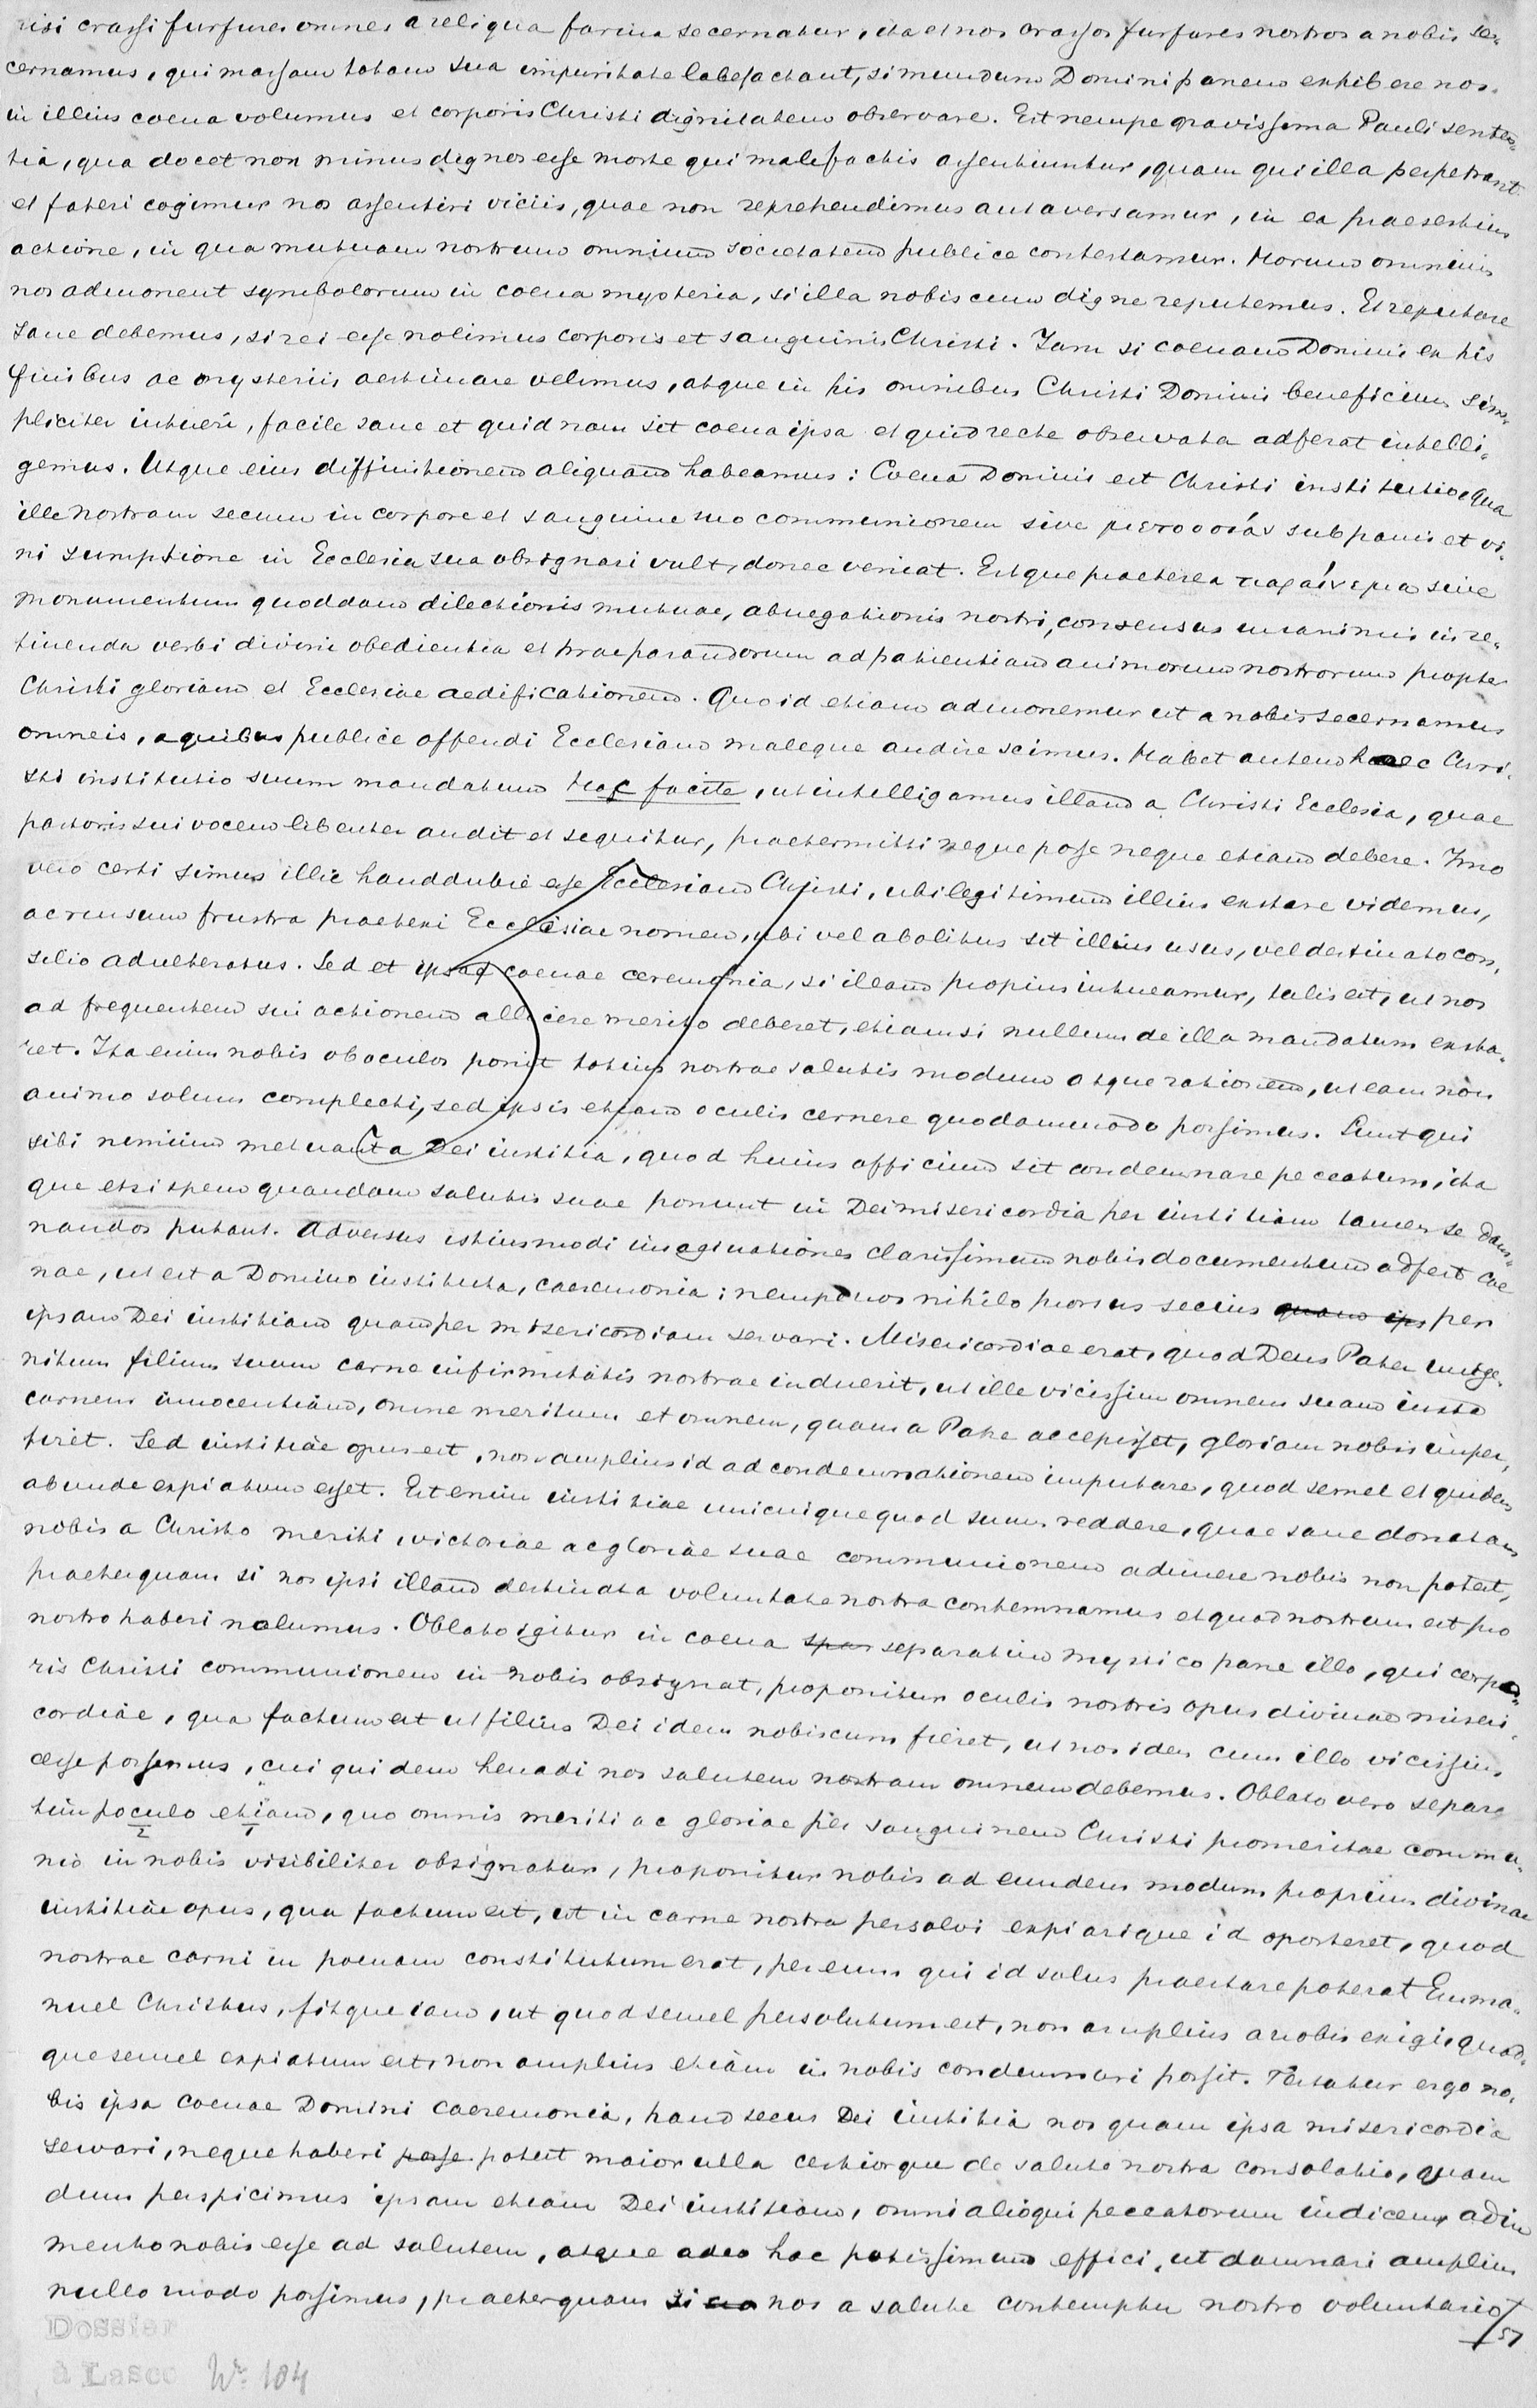 nisi crassi furfures omnes a reliqua farina secernatur, ita et nos crassos furfures nostros a nobis se-
cernamus, qui massam totam sua impuritate labefactant, si mundum Domini panem exhibere nos
in illius coena volumus et corporis Christi dignitatem observare. Est nempe gravissima Pauli senten-
tia, qua docet non minus dignos esse morte qui malefactis assentiuntur, quam qui illa perpetrant
et fateri cogimur nos assentiri viciis, quae non reprehendimus aut aversamur, in ea praesertim
actione, in qua mutuam nostram omnium societatem publice contestamur. Horum omnium
nos admonent symbolorum in coena mysteria, si illa nobiscum digne reputemus. Et reputare
sane debemus, si rei esse nolimus corporis et sanguinis Christi. Iam si coenam Domini ex his
finibus ac mysteriis aestimare velimus, atque in his omnibus Christi Domini beneficium sim-
pliciter intueri, facile sane et quidnam sit coena ipsa et quid recte observata adferat intelli-
gemus. Utque eius diffinitionem aliquam habeamus: Coena Domini est Christi institutio, qua
ille nostram secum in corpore et sanguine suo communionem sive μετουσίαν sub panis et vi-
ni sumptione in Ecclesia sua obsignari vult, donec veniat. Estque praeterea παραίνεμα sive
monumentum quoddam dilectionis mutuae, abnegationis nostri, consensus unanimis in re-
tinenda verbi divini obedientia et praeparandorum ad patientiam animorum nostrorum propter
Christi gloriam et Ecclesiae aedificationem. Quo id etiam admonemur ut a nobis secernamus
omneis, a quibus publice offendi Ecclesiam maleque audire scimus. Habet autem haec Chri-
sti institutio suum mandatum hoc facite, ut intelligamus illam a Christi Ecclesia, quae
pastoris sui vocem libenter audit et sequitur, praetermitti neque posse neque etiam debere. Imo
vero certi simus illic hauddubie esse Ecclesiam Christi, ubi legitimum illius exstare videmus,
ac rursum frustra praetexi Ecclesiae nomen, ubi vel abolitus sit illius usus, vel destinato con-
silio adulteratus. Sed et ipsa coenae ceremonia, si illam propius intueamur, talis est, ut nos
ad frequentem sui actionem allicere merito deberet, etiamsi nullum de illa mandatum exsta-
ret. Ita enim nobis ob oculos ponit totius nostrae salutis modum atque rationem, ut eam non
animo solum complecti, sed ipsis etiam oculis cernere quodammodo possimus. Sunt qui
sibi nimium metuant a Dei iustitia, quod huius officium sit condemnare peccatum, ita
que etsi spem quandam salutis suae ponunt in Dei misericordia per iustitiam tamen se dam-
nandos putant. Adversus istiusmodi imaginationes clarissimum nobis documentum adfert coe
nae, ut est a Domino instituta, caeremonia; nempe nos nihilo prorsus secius quam ips per
ipsam Dei iustitiam quam per misericordiam servari. Misericordiae erat, quod Deus Pater unige-
nitum filium suum carne infirmitatis nostrae induerit, ut ille vicissim omnem suam iusta
carnem innocentiam, omne meritum et omnem, quam a Patre accepisset, gloriam nobis imper-
tiret. Sed iustitiae opus est, non amplius id ad condemnationem imputare, quod semel et quidem
abunde expiatum esset. Est enim iustitiae unicuique quod suum reddere, quae sane donatam
nobis a Christo meriti, victoriae ac gloriae suae communionem adimere nobis non potest,
praeterquam si nos ipsi illam destinata voluntate nostra contemnamus et quod nostrum est pro
nostro haberi nolumus. Oblato igitur in coena spar separatim mystico pane illo, qui corpo-
ris Christi communionem in nobis obsignat, proponitur oculis nostris opus divinae miseri-
cordiae, qua factum est ut filius Dei idem nobiscum fieret, ut nos idem cum illo vicissim
esse possemus, cui quidem henadi nos salutem nostram omnem debemus. Oblato vero separa
tim poculo etiam, quo omnis meriti ac gloriae per sanguinem Christi promeritae commu-
nio in nobis visibiliter obsignatur, proponitur nobis ad eundem modum proprium divinae
iustitiae opus, qua factum est, ut in carne nostra persolvi expiarique id oporteret, quod
nostrae carni in poenam constitutum erat, per eum qui id solus praestare poterat Emma-
nuel Christus, fitque iam, ut quod semel persolutum est, non amplius a nobis exigi, quod-
que semel expiatum est, non amplius etiam in nobis condemnari possit. Testatur ergo no-
bis ipsa coenae Domini caeremonia, haud secus Dei iustitia nos quam ipsa misericordia
servari, neque haberi posse potest maior ulla certiorque de salute nostra consolatio, quam
dum perspicimus ipsam etiam Dei iustitiam, omni alioqui peccatorum iudicem, adiu
mento nobis esse ad salutem, atque adeo hac potissimum effici, ut damnari amplius
nullo modo possimus, praeterquam si nos a salute contemptu nostro voluntario
51
Dossier
à Lasco Nr. 104